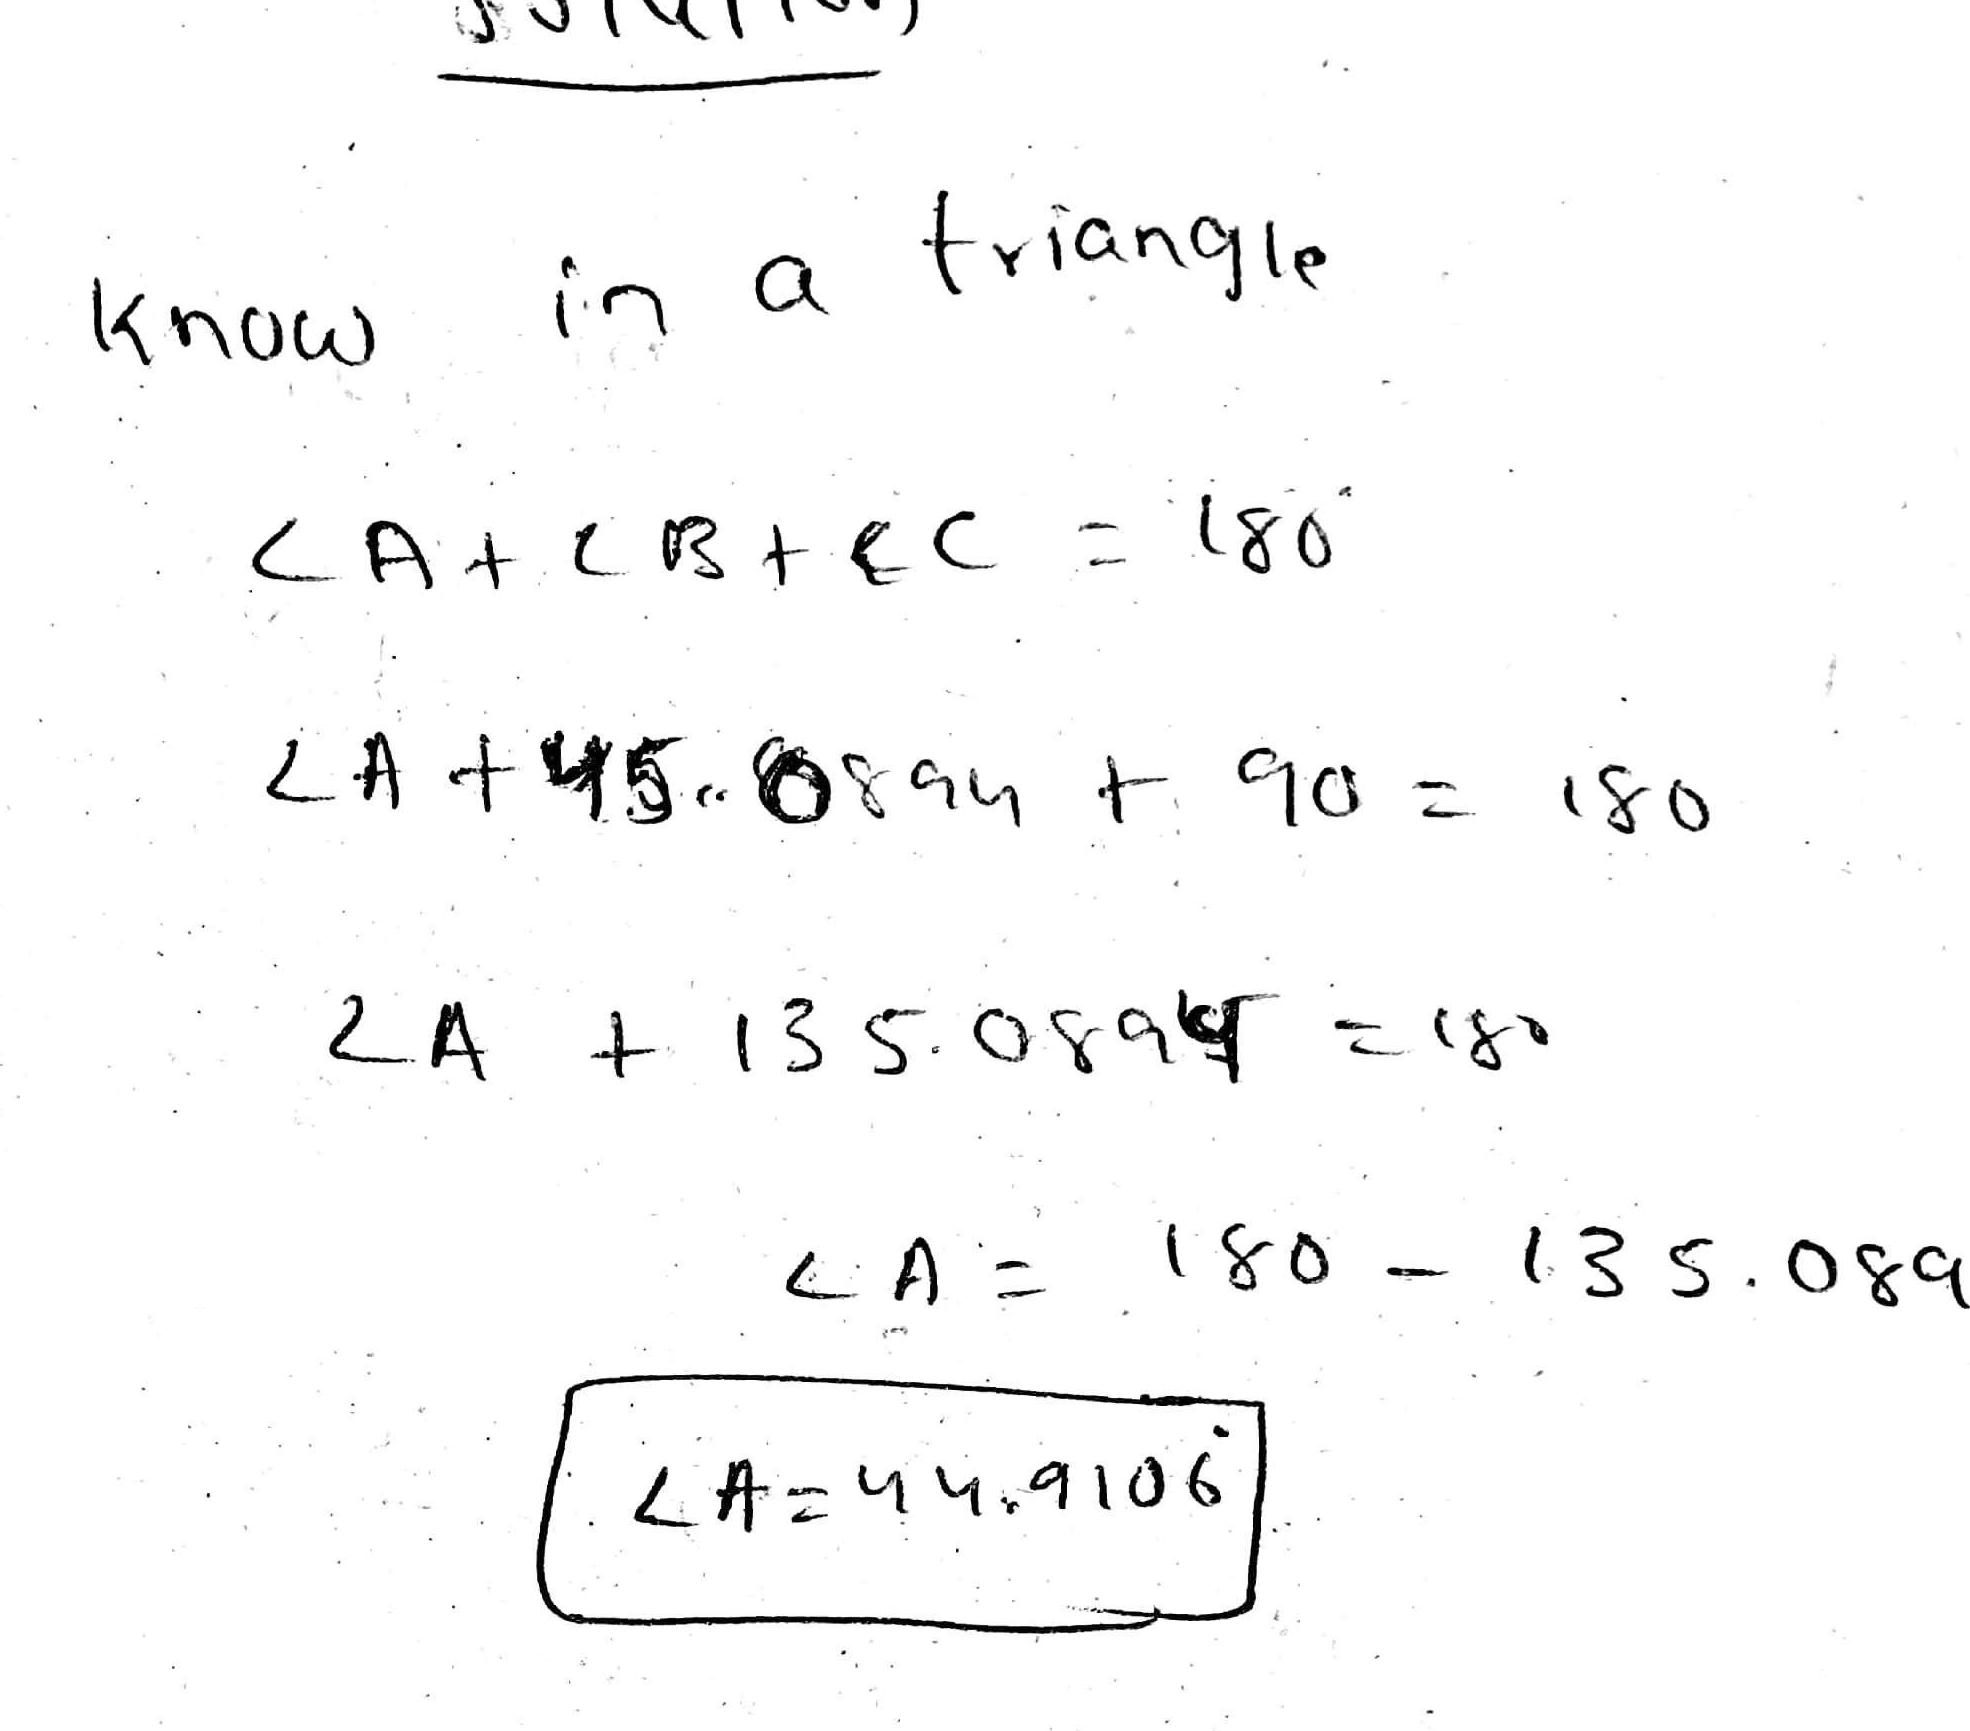 solution
know in a triangle
∠A + ∠B + ∠C = 180°
∠A + 45.0894 + 90 = 180
∠A + 135.0894 = 180
∠A = 180 - 135.089
∠A = 44.9106°